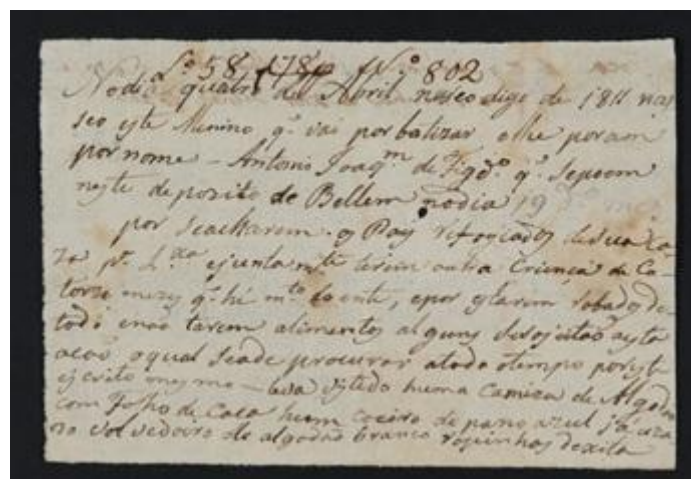 Lº 58 1784 Nº 802
No dia quatro de Abril nasceo digo de 1811 nas
seo este Menino q.e vai por batizar e lhe poram
por nome - Antonio Joaq.m de Fig.do q.e sepoem
neste deposito de Bellem no dia 19 do
por seacharem os Pays refogiados de sua Ca
za p.a Lx.a ejuntam.te terem outra Criença de Ca-
torze mezes q.e hé m.to doente, epor estarem robados de
todo enaõ terem alimentos alguns
acaõ oqual seade procurar atodo otempo por este
escrito mesmo - leva vestido huma Camiza de Algodaõ
com Folho de Caça hum coeiro de pano azul já uza
do volvedoiro de algodaõ branco roupinhas dexita